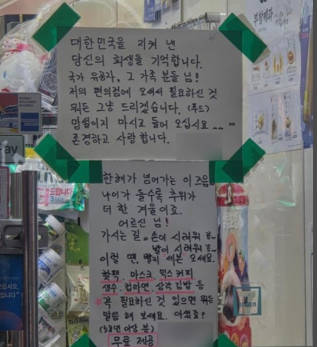 대한민국을 지켜 낸
당신의 희생을 기억합니다.
국가 유공자, 그 가족 분들 님!
저의 편의점에 오셔서 필요하신 것
뭐든 그냥 드리겠습니다. (푸드)
망설이지 마시고 들어 오십시요
존경하고 사랑합니다.
한해가 넘어가는 이즈음
나이가 들수록 추위가
더 한 겨울이죠.
어르신 님!
가시는 길. 손이 시려워 또
발이 시려워 또
이럴 땐, 빨리 여쭤 보세요.
핫팩, 마스크, 믹스커피
생수, 컵라면, 삼각김밥 등
꼭 필요하신 것 있으면 뭐든
말씀 해 보세요. 아셨죠?
무료 제공